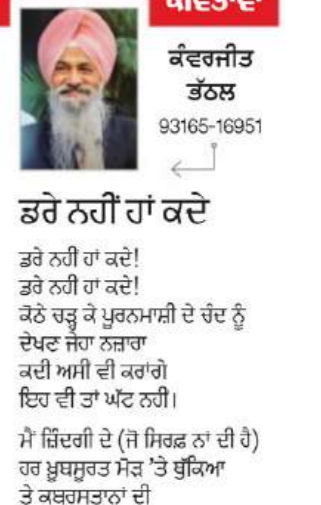 ਕਵਿਤਾਵਾਂ
ਕੰਵਰਜੀਤ
ਭੱਠਲ
93165-16951
ਡਰੇ ਨਹੀਂ ਹਾਂ ਕਦੇ
ਡਰੇ ਨਹੀ ਹਾਂ ਕਦੇ!
ਡਰੇ ਨਹੀ ਹਾਂ ਕਦੇ!
ਕੋਠੇ ਚੜ੍ਹ ਕੇ ਪੂਰਨਮਾਸ਼ੀ ਦੇ ਚੰਦ ਨੂੰ
ਦੇਖਣ ਜੇਹਾ ਨਜ਼ਾਰਾ
ਕਦੀ ਅਸੀ ਵੀ ਕਰਾਂਗੇ
ਇਹ ਵੀ ਤਾਂ ਘੱਟ ਨਹੀ।
ਮੈਂ ਜ਼ਿੰਦਗੀ ਦੇ (ਜੋ ਸਿਰਫ਼ ਨਾਂ ਦੀ ਹੈ)
ਹਰ ਖ਼ੂਬਸੂਰਤ ਮੋੜ 'ਤੇ ਥੁੱਕਿਆ
ਤੇ ਕਬਰਸਤਾਨਾਂ ਦੀ